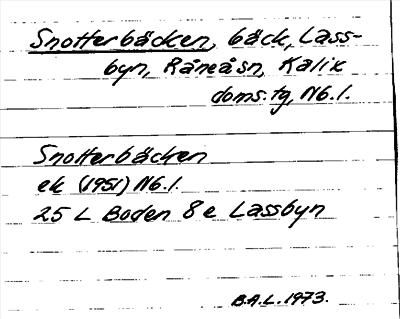 Snotterbäcken, bäck, Lass-
byn, Råneåsn, Kalix
doms.tg, Nb.l.
Snotterbäcken
ek (1951) Nb.l.
25 L Boden 8 e Lassbyn
B.A.L. 1973.